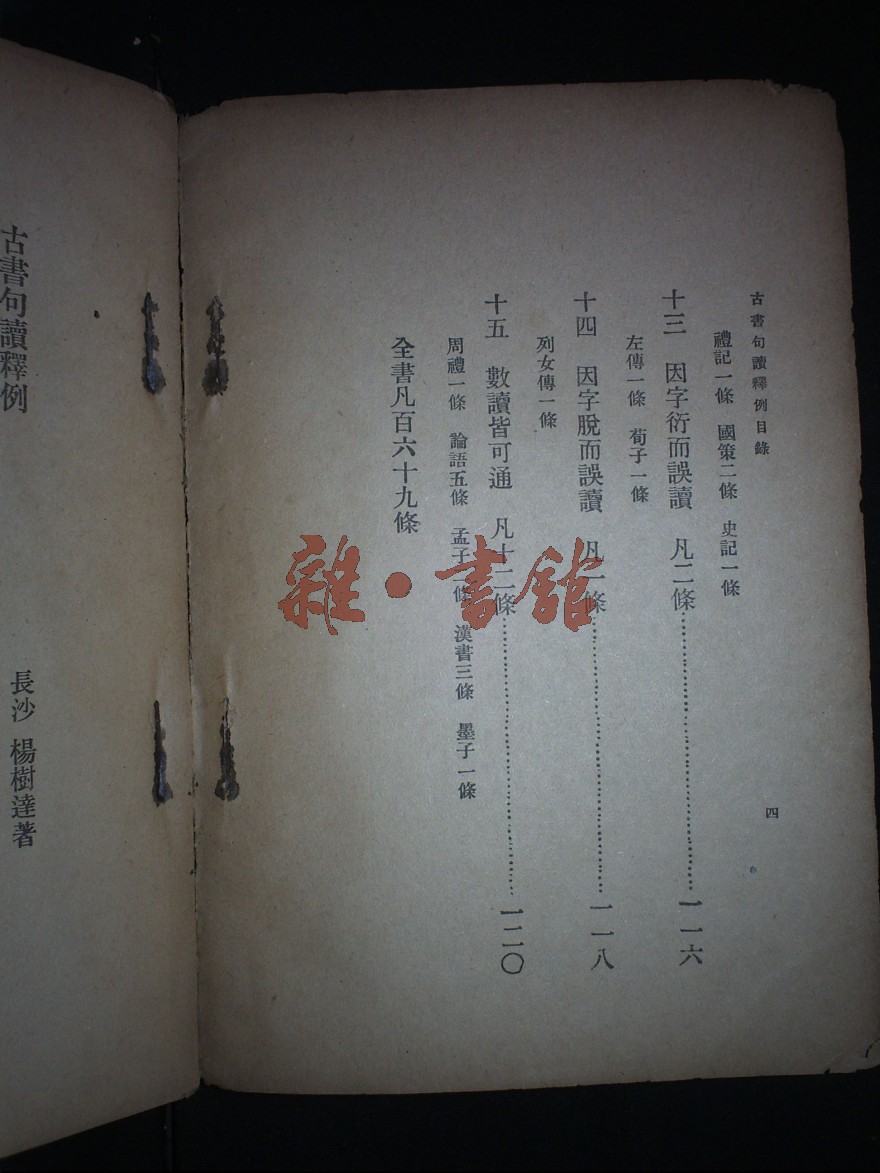 古書句讀釋例目錄
四
禮記一條 國策二條 史記一條
十三 因字衍而誤讀 凡二條……一一六
左傳一條 荀子一條
十四 因字脫而誤讀 凡一條……一一八
列女傳一條
十五 數讀皆可通 凡十二條……一二〇
周禮一條 論語五條 孟子二條 漢書三條 墨子一條
全書凡百六十九條
古書句讀釋例
長沙 楊樹達著
雜·書館